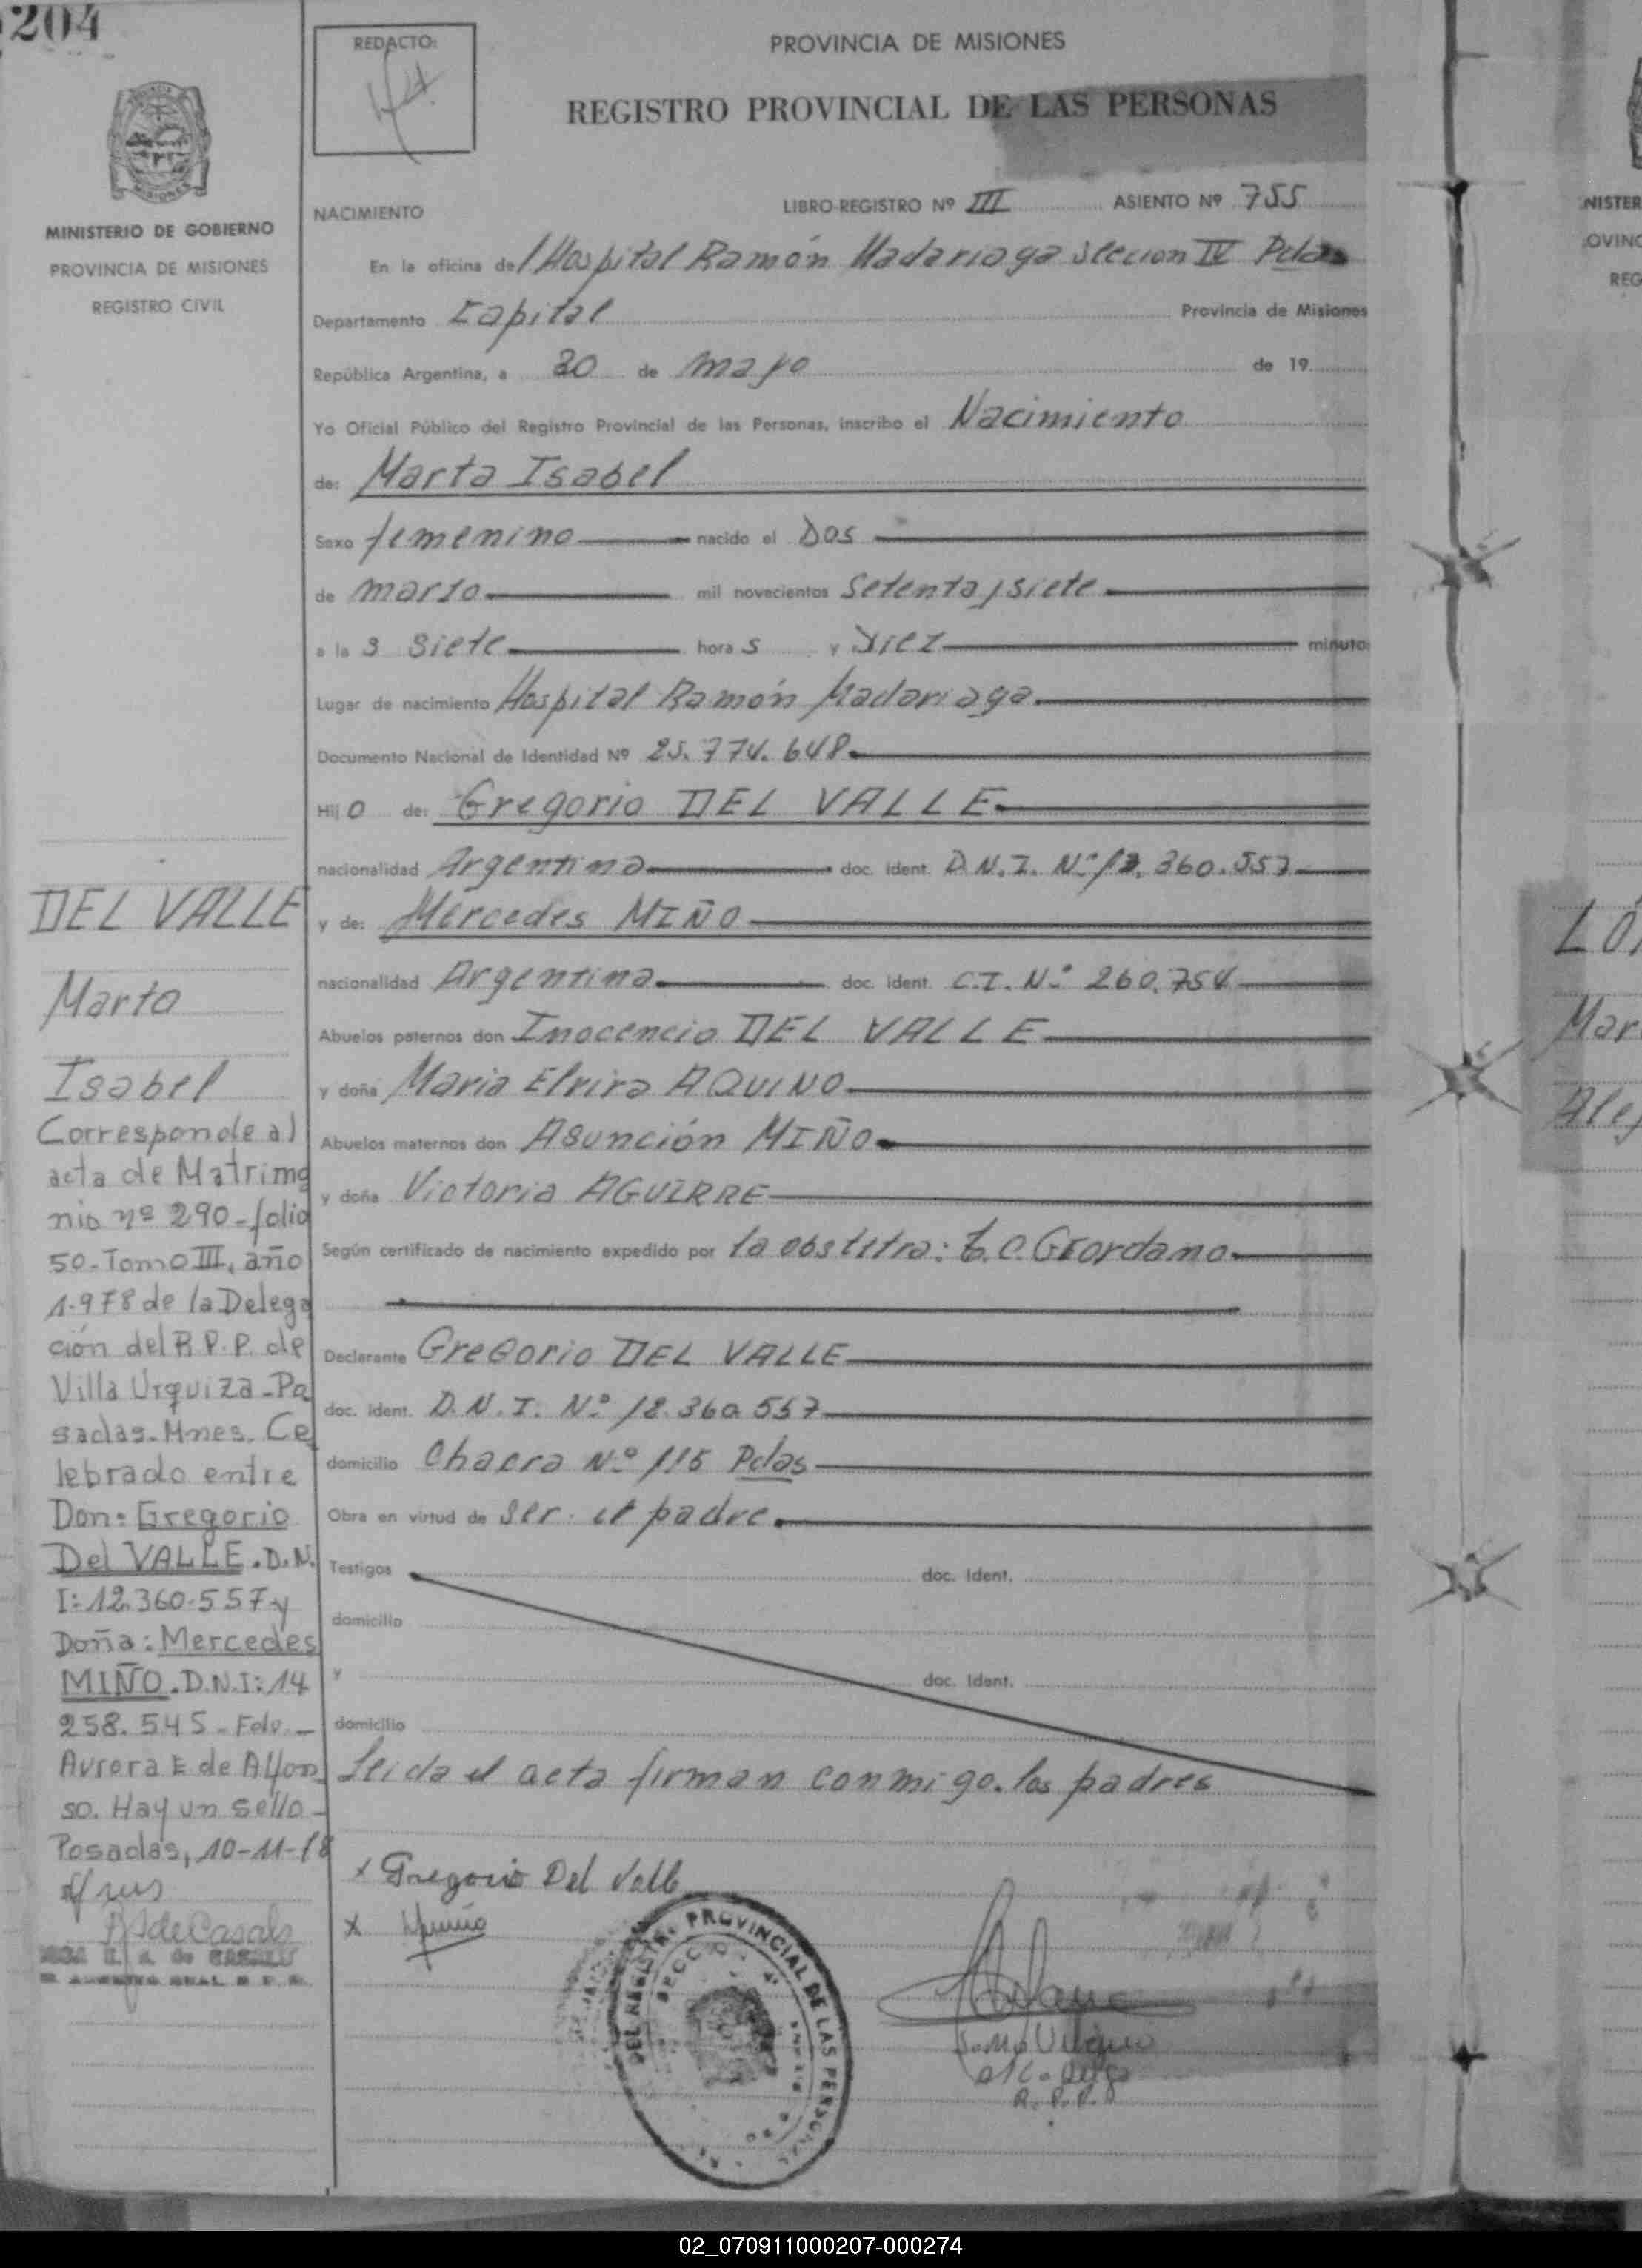 204
REDACTO:
PROVINCIA DE MISIONES
REGISTRO PROVINCIAL DE LAS PERSONAS
MINISTERIO DE GOBIERNO
PROVINCIA DE MISIONES
REGISTRO CIVIL
NACIMIENTO LIBRO-REGISTRO Nº III ASIENTO Nº 755
En la oficina del Hospital Ramón Madariaga Seccion IV Pdas
Departamento Capital Provincia de Misiones
República Argentina, a 30 de mayo de 19
Yo Oficial Público del Registro Provincial de las Personas, inscribo el Nacimiento
de: Marta Isabel
Sexo femenino nacido el Dos
de marzo mil novecientos Setenta y siete
a la s siete hora s y Diez minuto
Lugar de nacimiento Hospital Ramón Madariaga.
Documento Nacional de Identidad Nº 25.774.648
Hij o de: Gregorio DEL VALLE
nacionalidad Argentina doc. ident. D.N.I. Nº 12.360.557
y de: Mercedes MIÑO
nacionalidad Argentina doc. ident. C.I. Nº 260.754
Abuelos paternos don Inocencio DEL VALLE
y doña Maria Elvira AQUINO
Abuelos maternos don Asunción MIÑO
y doña Victoria AGUIRRE
Según certificado de nacimiento expedido por la obstetra: Giordano
Declarante Gregorio DEL VALLE
doc. ident. D.N.I. Nº 12.360.557
domicilio Chacra Nº 115 Pdas
Obra en virtud de ser el padre.
Testigos doc. Ident.
domicilio
y doc. Ident.
domicilio
Leida el acta firman conmigo. los padres
x Gregorio Del Valle
x Miño
DEL REGISTRO PROVINCIAL DE LAS PERSONAS
R.P.P.
DEL VALLE
Marta
Isabel
Corresponde al
acta de Matrimo
nio nº 290-folio
50-Tomo III, año
1.978 de la Delega
ción del R.P.P. de
Villa Urquiza-Po
sadas-Mnes. Ce
lebrado entre
Don: Gregorio
Del VALLE.D.N.
I:12.360.557-y
Doña: Mercedes
MIÑO.D.N.I:14
258.545-Fdo.-
Aurora E de Alfon
so. Hay un sello-
Posadas, 10-11-78
de Casals
LÓ
Mar
Ale
NISTER
OVINC
REG
02_070911000207-000274